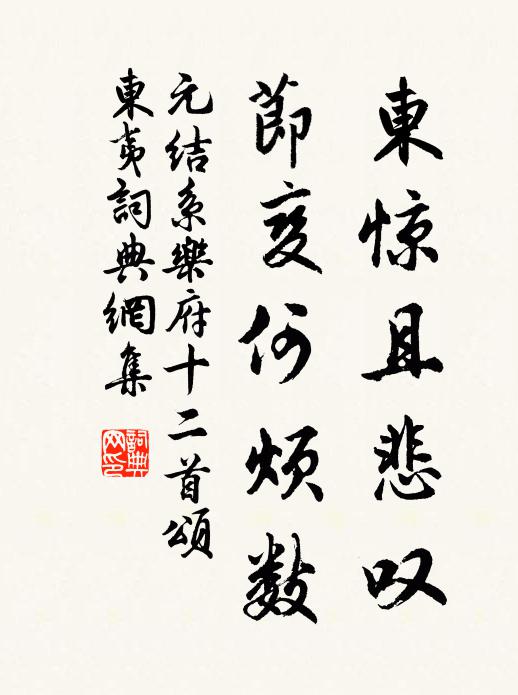 東惊且悲叹
節变何烦数
元结系樂府十二首頌
東夷詞典網集
詞典网印